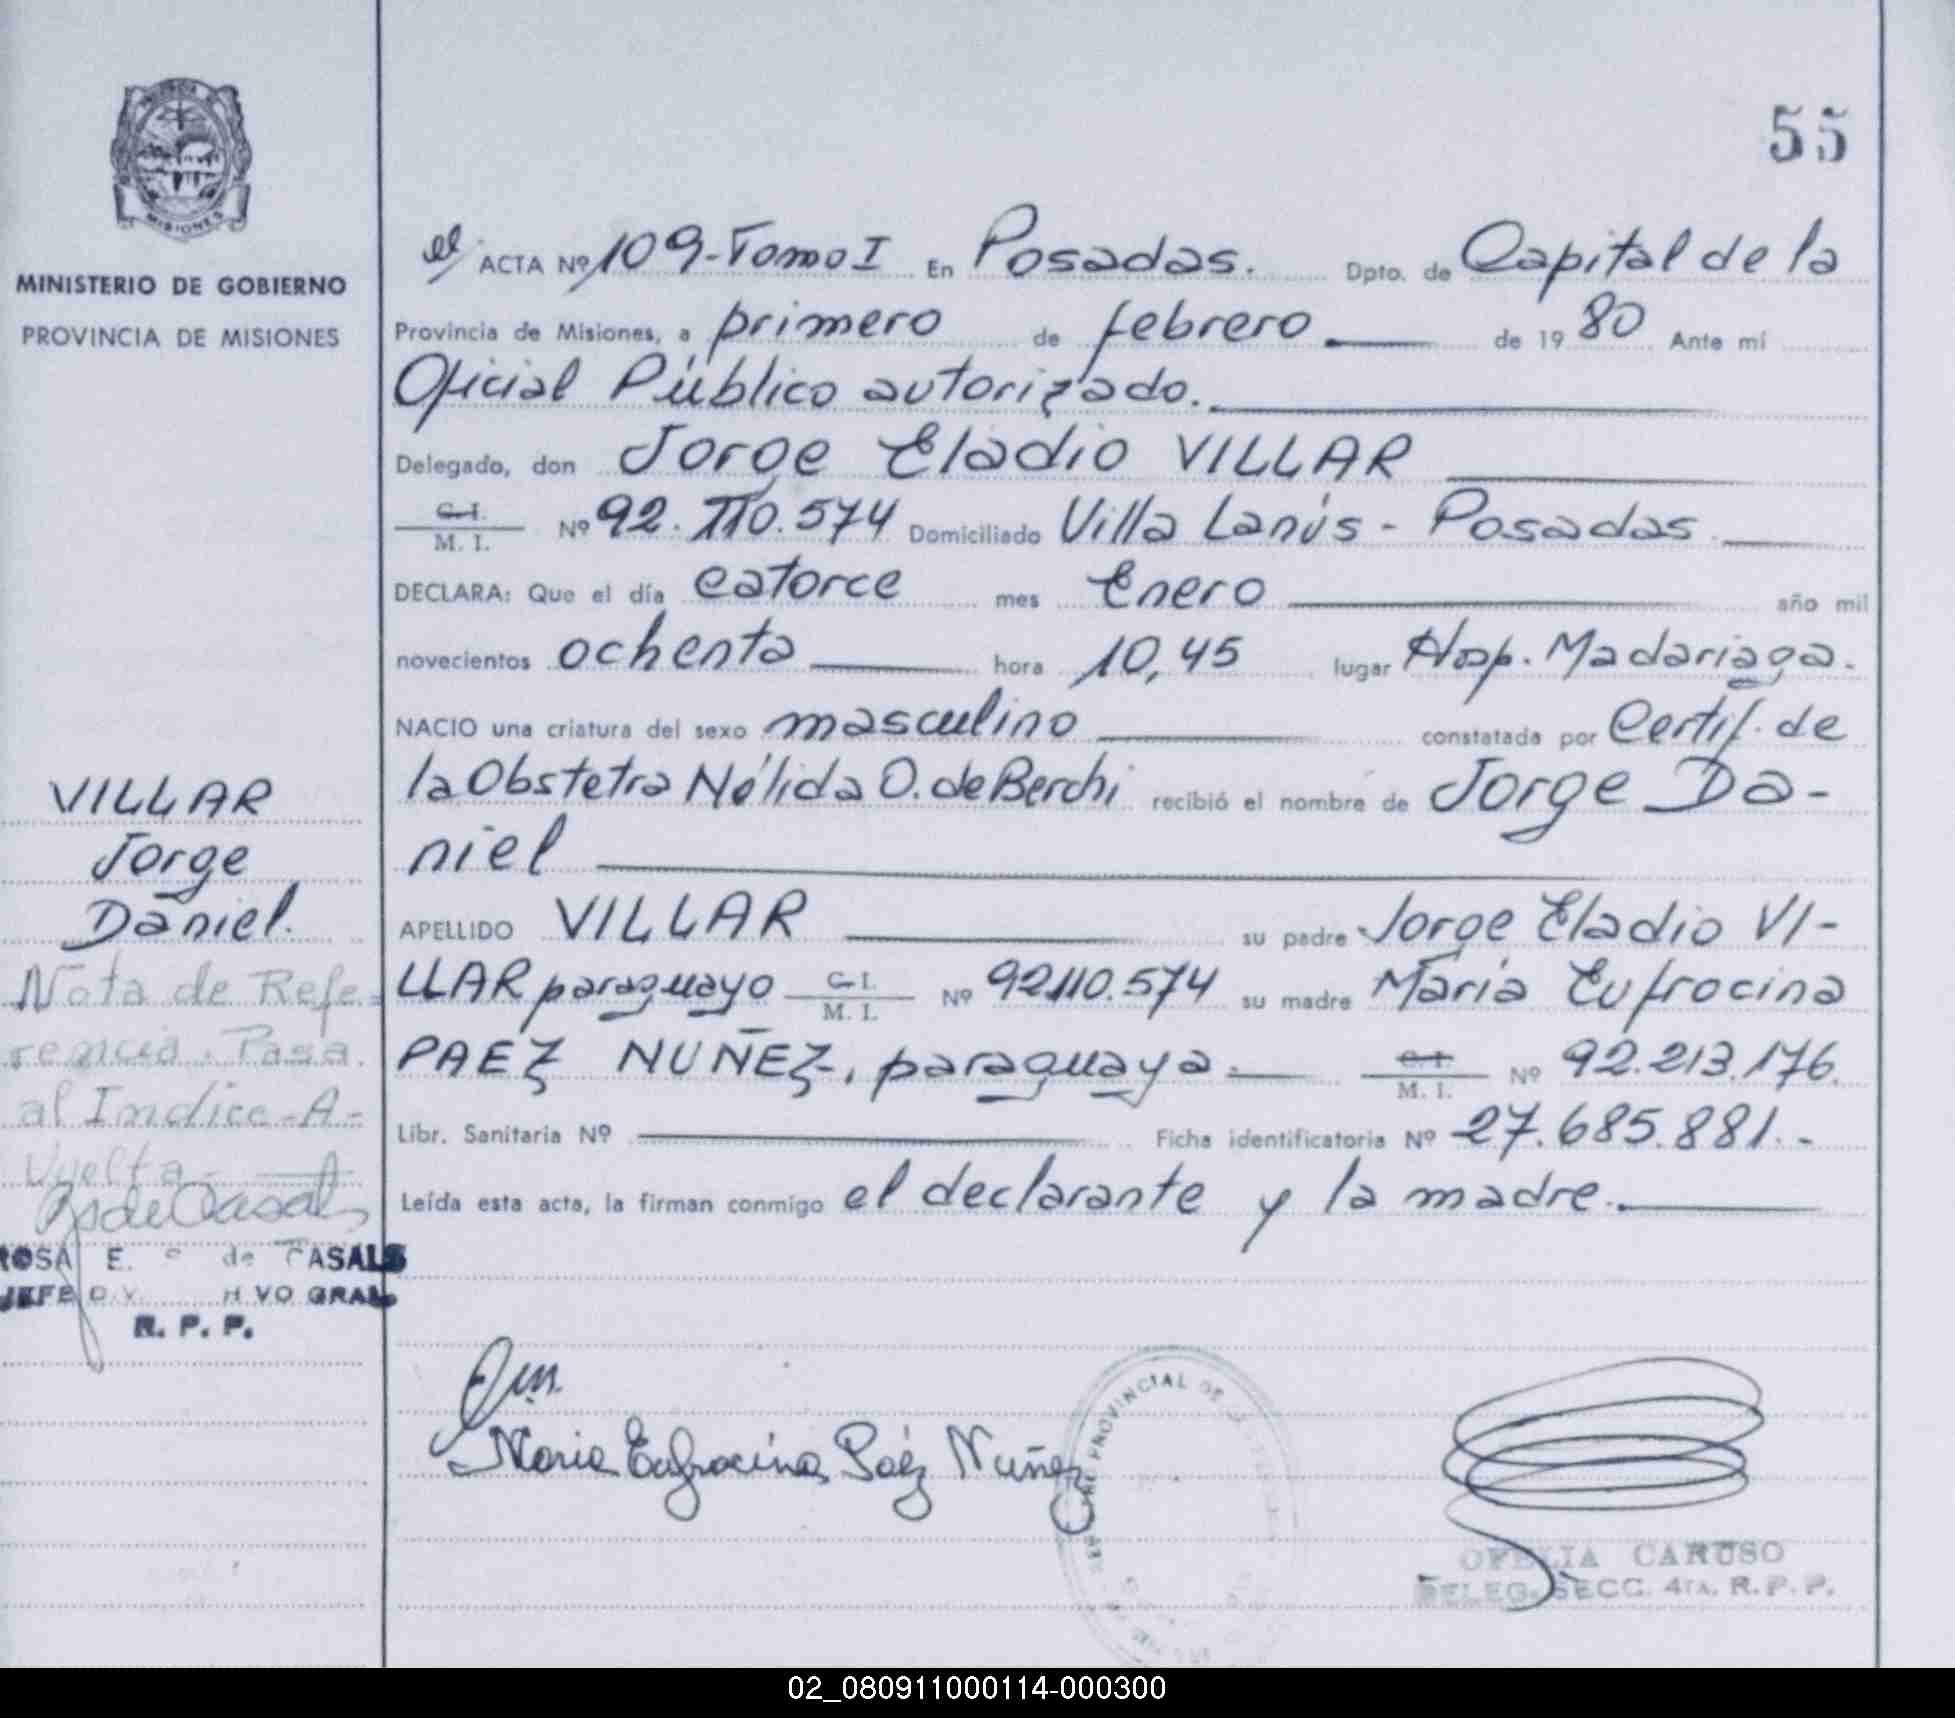 MISIONES
55
MINISTERIO DE GOBIERNO
PROVINCIA DE MISIONES
ACTA Nº 109-Tomo I En Posadas. Dpto. de Capital de la
Provincia de Misiones, a primero de febrero de 1980 Ante mí
Oficial Público autorizado.
Delegado, don Jorge Eladio VILLAR
C. I.
M. I. Nº 92.110.574 Domiciliado Villa Lanús - Posadas
DECLARA: Que el día catorce mes Enero año mil
novecientos ochenta hora 10,45 lugar Hosp. Madariaga.
NACIO una criatura del sexo masculino constatada por Certif. de
la Obstetra Nélida O. de Berchi recibió el nombre de Jorge Da-
niel
APELLIDO VILLAR su padre Jorge Eladio VI-
LLAR paraguayo C. I. M. I. Nº 92110.574 su madre María Eufrocina
PAEZ NUÑEZ-, paraguaya. C. I. M. I. Nº 92.213.176.
Libr. Sanitaria Nº Ficha identificatoria Nº 27.685.881.-
Leída esta acta, la firman conmigo el declarante y la madre.
VILLAR
Jorge
Daniel.
Nota de Refe-
rencia. Pasa
al Indice-A-
Vuelta-
ROSA E. de CASALS
JEFE VO GRAL
R. P. P.
Maria Eufrocina Páez Nuñez
PROVINCIAL DE
OFELIA CARUSO
DELEG. SECC. 4TA. R. P. P.
02_080911000114-000300